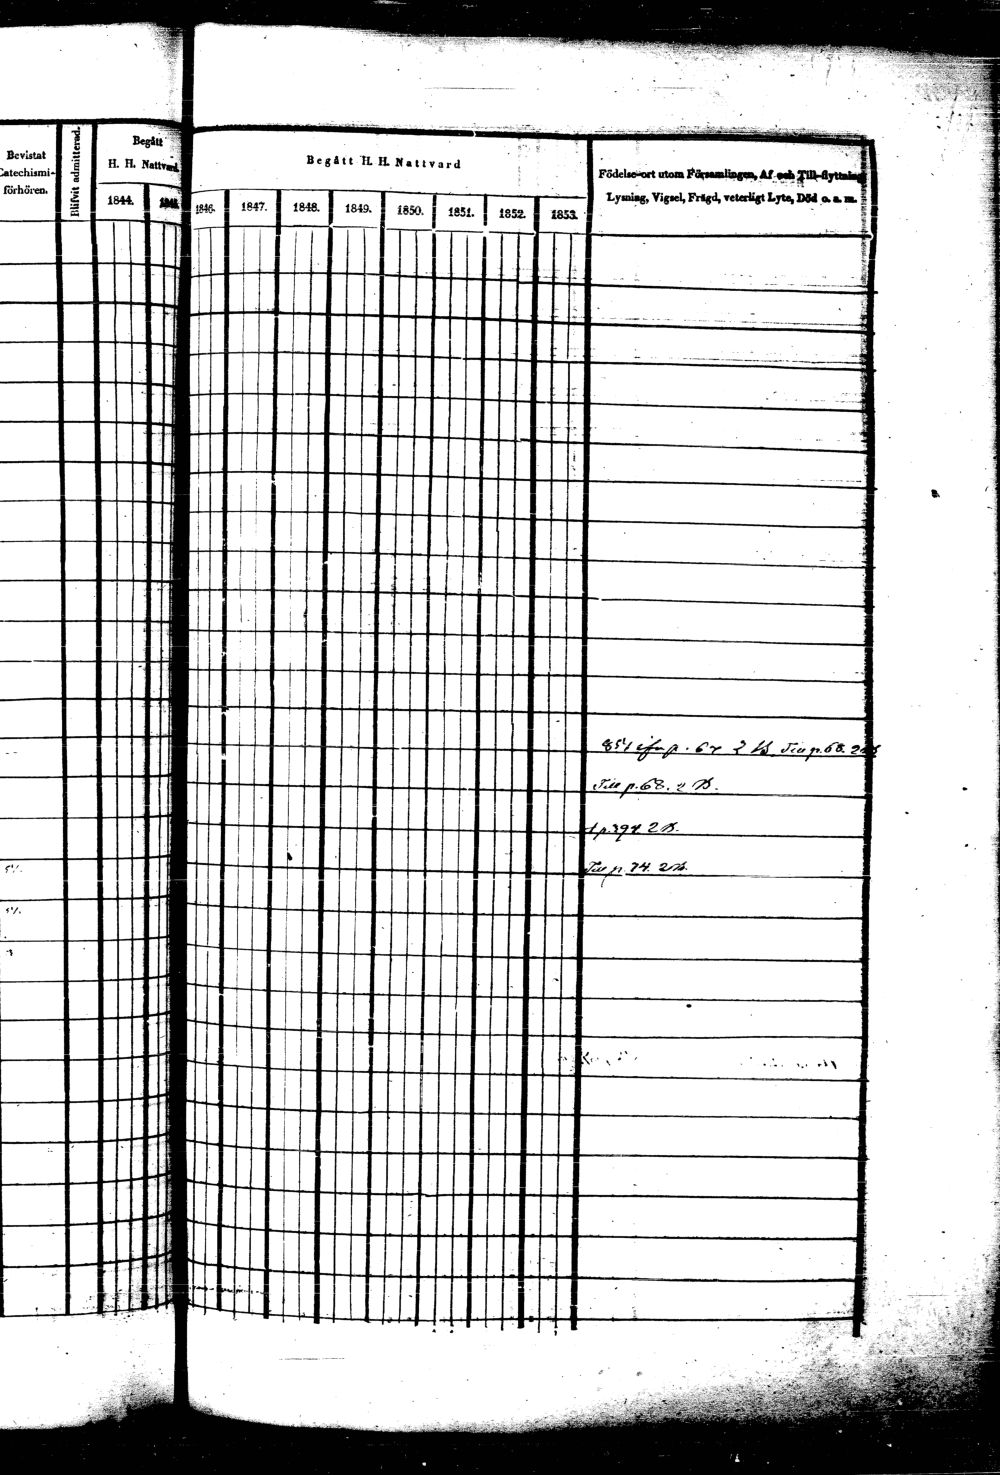 Bevistat
Catechismi-
förhören.
Blifvit admitterad.
Begått
H. H. Nattvard
1844. 1845.
Begått H. H. Nattvard
1846. 1847. 1848. 1849. 1850. 1851. 1852. 1853.
Födelse-ort utom Församlingen, Af och Till-flyttning
Lysning, Vigsel, Frägd, veterligt Lyte, Död o. s. m.
851 ifr p. 67 2 B. Till p. 68. 2 B
Till p. 68. 2 B.
2 B.
Till p. 74. 2 B.
5/.
5/.